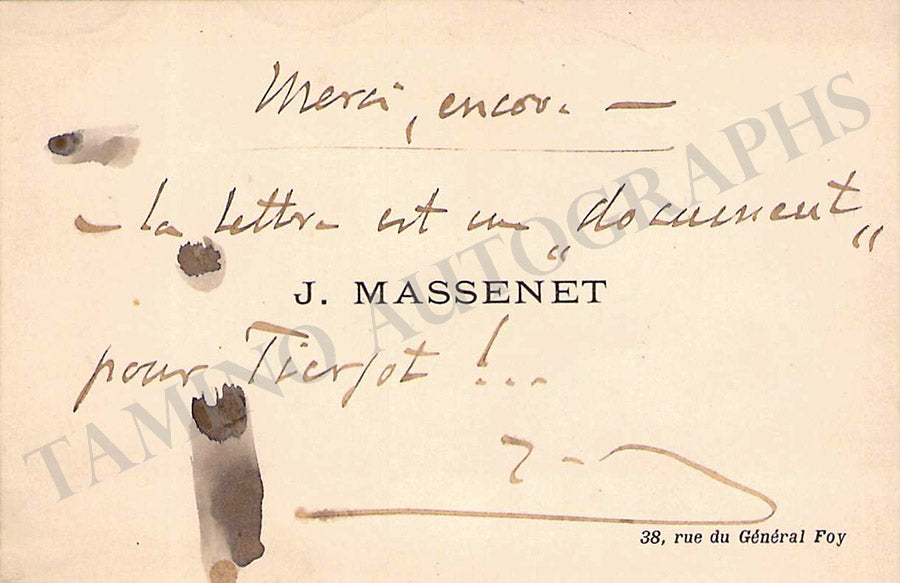 Merci, encore —
— la lettre est un „document„
J. MASSENET
pour Tiersot !...
38, rue du Général Foy
TAMINO AUTOGRAPHS